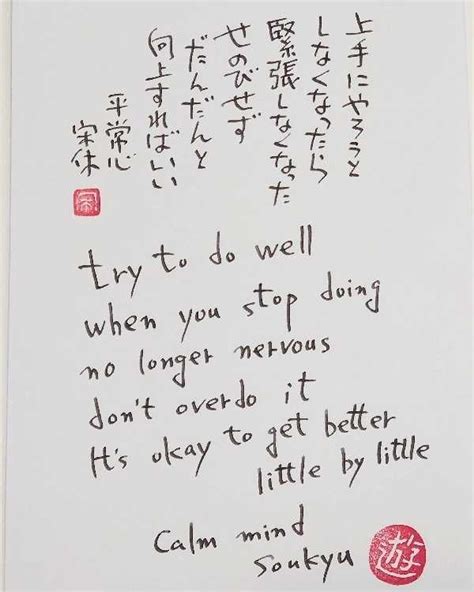 上手にやろうと
しなくなったら
緊張しなくなった
せのびせず
だんだんと
向上すればいい
平常心
宗休
try to do well
when you stop doing
no longer nervous
don't overdo it
It's okay to get better
little by little
Calm mind
soukyu
遊